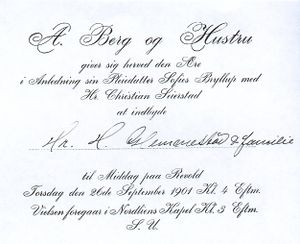 A. Berg og Hustru
giver sig herved den Ære
i Anledning sin Pleiedatter Sofies Bryllup med
Hr. Christian Seierstad
at indbyde
Hr. H. & familie
til Middag paa Revold
Torsdag den 26de September 1901 Kl. 4 Eftm.
Vielsen foregaar i Nordliens Kapel Kl. 3 Eftm.
S. U.